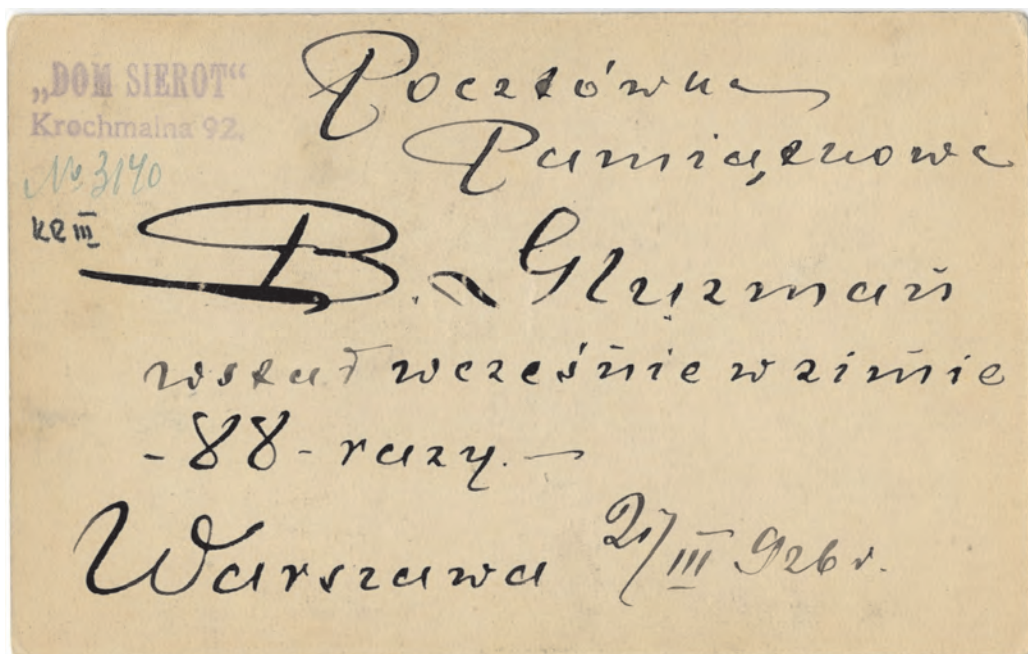 „DOM SIEROT“
Krochmalna 92.
№ 3140
KR III
Pocztówka
Pamiątkowa
B. Gluzman
wstał wcześnie w zimie
- 88 - razy. —
Warszawa 21/III 926 r.